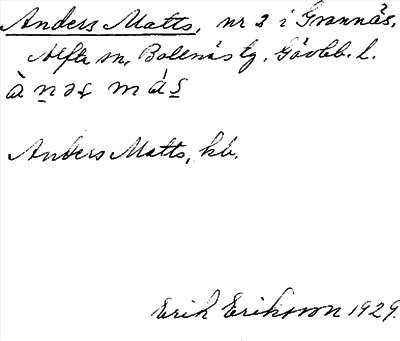 Anders Matts, nr 2 i Grannäs,
Alfta sn, Bollnäs tg. Gävleb. l.
Anders Matts, kb.
Erik Eriksson 1929.